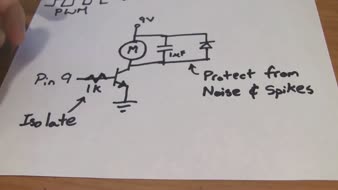 PWM
9V
M
1µF
Pin 9
1K
Isolate
Protect from
Noise & Spikes